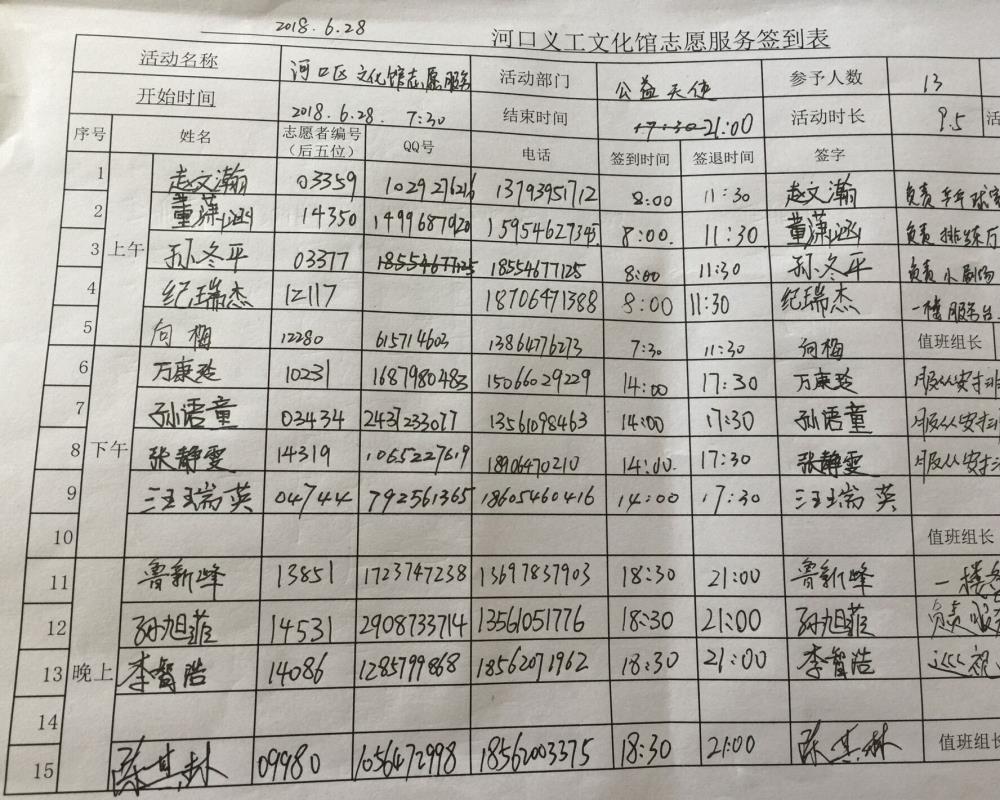 2018.6.28
河口义工文化馆志愿服务签到表
活动名称 河口区文化馆志愿服务 活动部门 公益天使 参予人数 13
开始时间 2018.6.28. 7:30 结束时间 17:30 21:00 活动时长 9.5 活
序号 姓名 志愿者编号（后五位） QQ号 电话 签到时间 签退时间 签字
上午
1 赵文瀚 03359 1029276216 13793951712 8:00 11:30 赵文瀚 负责乒乓球室
2 董潇涵 14350 1499687920 15954627345 8:00. 11:30 董潇涵 负责排练厅
3 孙冬平 03377 18554677125 18554677125 8:00 11:30 孙冬平 负责小剧场
4 纪瑞杰 12117 18706471388 8:00 11:30 纪瑞杰 一楼服务台
5 向梅 12280 615714603 13864776273 7:30 11:30 向梅 值班组长
下午
6 万康玲 10231 1687980483 15066029229 14:00 17:30 万康玲 服从安排
7 孙语童 03434 2437233077 13561098463 14:00 17:30 孙语童 服从安排
8 张静雯 14319 1065227619 18906470210 14:00. 17:30 张静雯 服从安排
9 王瑞英 04744 792561365 18605460416 14:00 17:30 王瑞英
10 值班组长
晚上
11 鲁新峰 13851 1723747238 13697837903 18:30 21:00 鲁新峰 一楼
12 孙旭菲 14531 2908733714 13561051776 18:30 21:00 孙旭菲 负责
13 李智浩 14086 1285799868 18562071962 18:30 21:00 李智浩 巡视
14
15 陈其林 09980 1056472998 18562003375 18:30 21:00 陈其林 值班组长